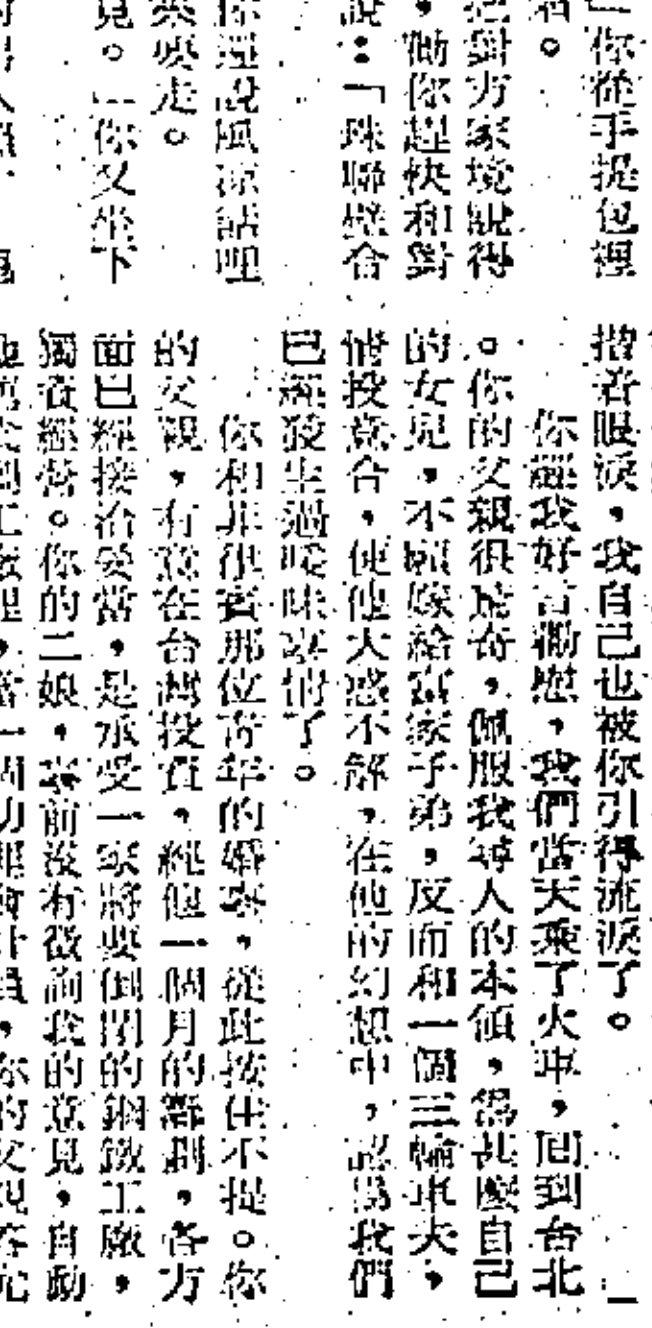 」你從手提包裡
。
把對方家境說得
，勸你趕快和對
說：「珠聯璧合
你還說風涼話哩
要走。
見。「你又坐下
揩着眼淚，我自己也被你引得流淚了。
你經我好言勸慰，我們當天乘了火車，回到台北
。你的父親很驚奇，佩服我尋人的本領，爲甚麼自己
的女兒，不願嫁給富家子弟，反而和一個三輪車夫，
情投意合，使他大惑不解，在他的幻想中，認爲我們
已經發生過曖昧事情了。
你和菲律賓那位青年的婚事，從此按住不提。你
的父親，有意在台灣投資，經他一個月的籌劃，各方
面已經接洽妥當，是承受一家將要倒閉的鋼鐵工廠，
獨資經營。你的二娘，事前沒有徵詢我的意見，自動